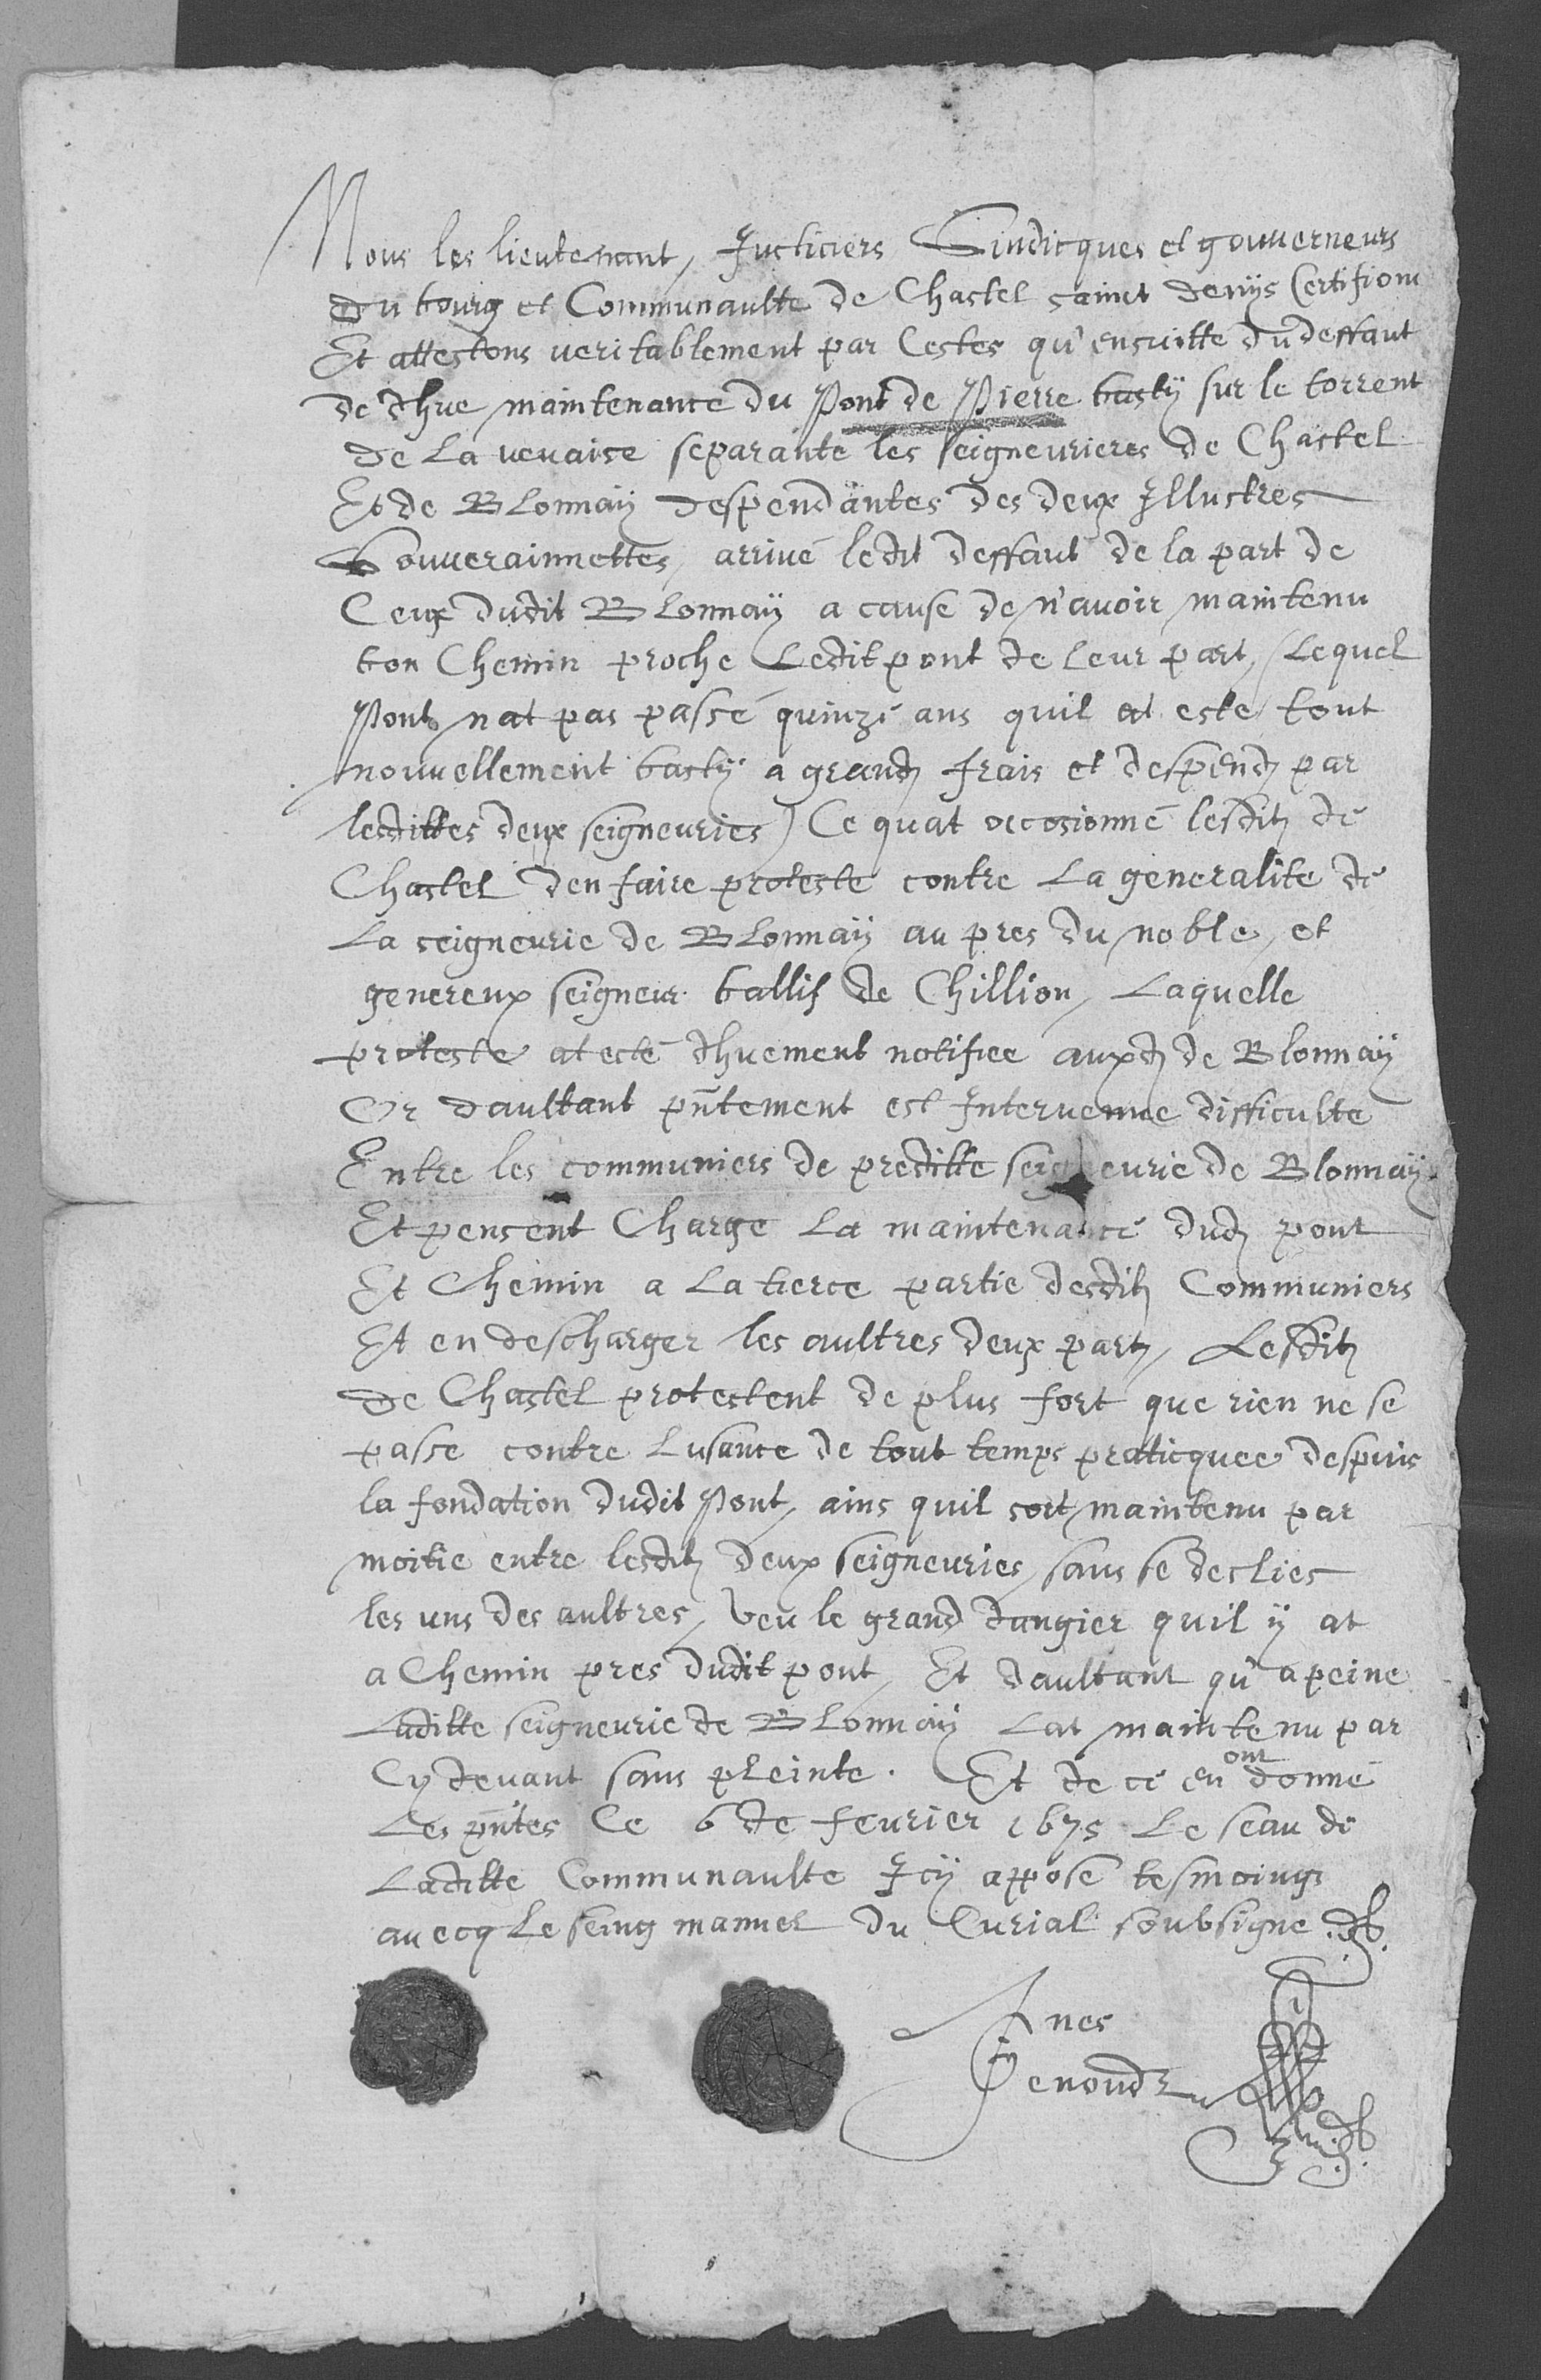 Nous les lieutenant, Justiciers Sindicques et gouverneurs
du bourg et Communaulte de Chastel sainct denys Certifions
Et attestons veritablement par Cestes qu'ensuitte du deffaut
de dhue maintenance du Pont de Pierre basty sur le torrent
de la vevaise separante les seigneurieres de Chastel
Et de Blonnaÿ despendantes des deux Illustres
Souverainnettes, arrivé ledit deffaut de la part de
Ceux dudit Blonnaÿ a cause de n'avoir maintenu
bon Chemin proche Ledit pont de leur part, (Lequel
Pont n'at pas passé quinzé ans quil at esté tout
nouvellement basty a grandz frais et despendz par
lesdittes deux seigneuries) Ce quat occosionné lesditz de
Chastel den faire proteste contre La generalite de
La seigneurie de Blonnaÿ au pres du noble, et
genereux seigneur ballif de Chillion, Laquelle
proteste at esté dhuement notifiee auxdz de Blonnaÿ
Or daultant pñtement est Intervenue difficulte
Entre les communiers de preditte seigneurie de Blonnaÿ
Et pensent Charge La maintenance dudz pont
Et Chemin a La tierce partie desditz Communiers
Et en descharger les aultres deux partz, Lesditz
de Chastel protestent de plus fort que rien ne se
passe contre Lusance de tout temps praticquee despuis
la fondation dudit Pont, ains quil soit maintenu par
moitie entre lesditz deux seigneuries, sans se deslies
les uns des aultres, veu le grand dangier quil ÿ at
a Chemin pres dudit pont, Et daultant qu'a peine
Laditte seigneurie de Blonnaÿ Lat maintenu par
Cy devant sans pleinte. Et de ce en ont donné
Les pñtes Ce 6 de febvrier 1675 Le seau de
Laditte Communaulte Icÿ apposé tesmoings
avecq Le seing manuel du Curial soubsigne
Ynes
Genoud